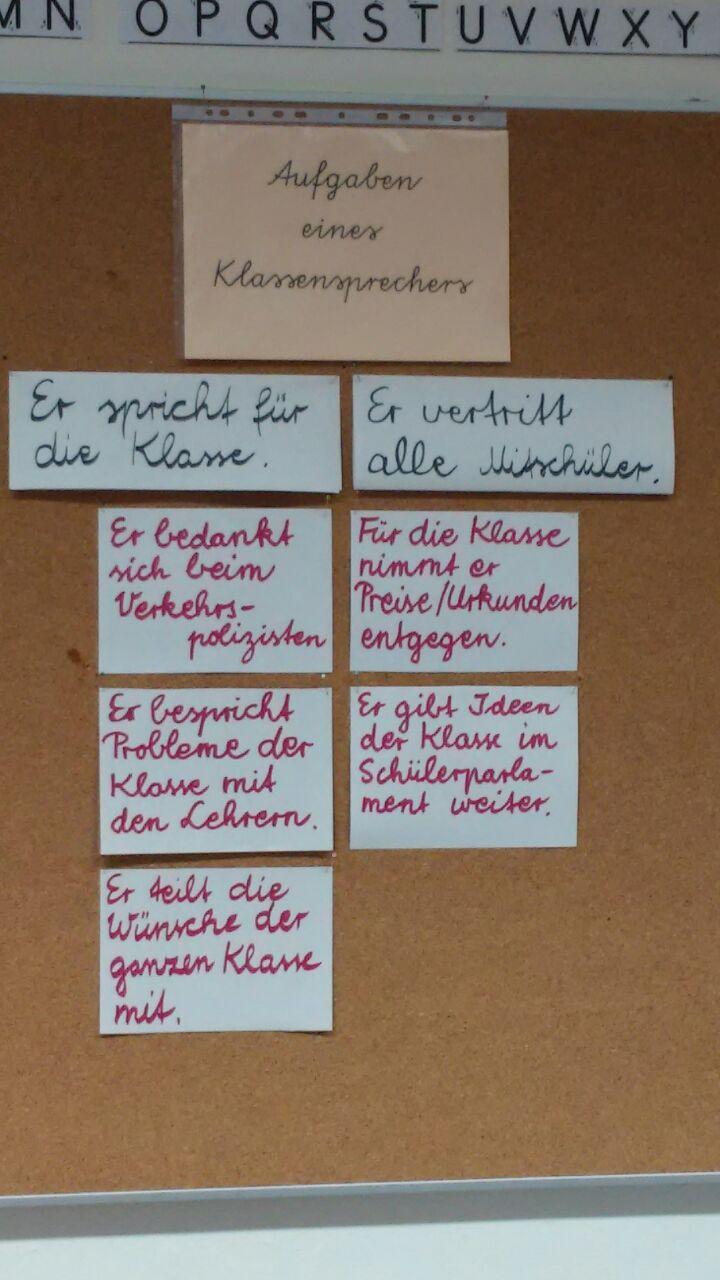 MN OPQRST UVWXY
Aufgaben
eines
Klassensprechers
Er spricht für
die Klasse.
Er vertritt
alle Mitschüler.
Er bedankt
sich beim
Verkehrs-
polizisten
Für die Klasse
nimmt er
Preise/Urkunden
entgegen.
Er bespricht
Probleme der
Klasse mit
den Lehrern.
Er gibt Ideen
der Klasse im
Schülerparla-
ment weiter.
Er teilt die
Wünsche der
ganzen Klasse
mit.